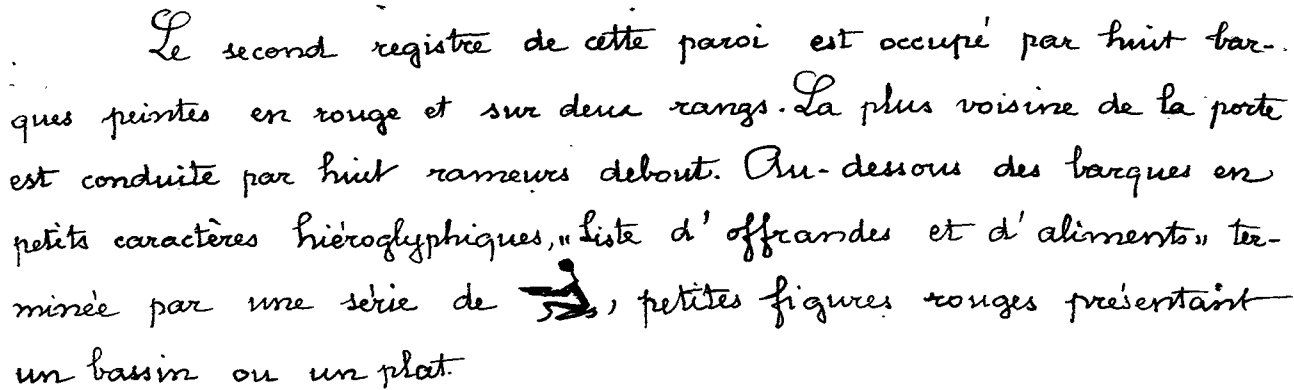 Le second registre de cette paroi est occupé par huit bar-
ques peintes en rouge et sur deux rangs. La plus voisine de la porte
est conduite par huit rameurs debout. Au-dessous des barques en
petits caractères hiéroglyphiques, „liste d'offrandes et d'aliments„ ter-
minée par une série de , petites figures rouges présentant
un bassin ou un plat.